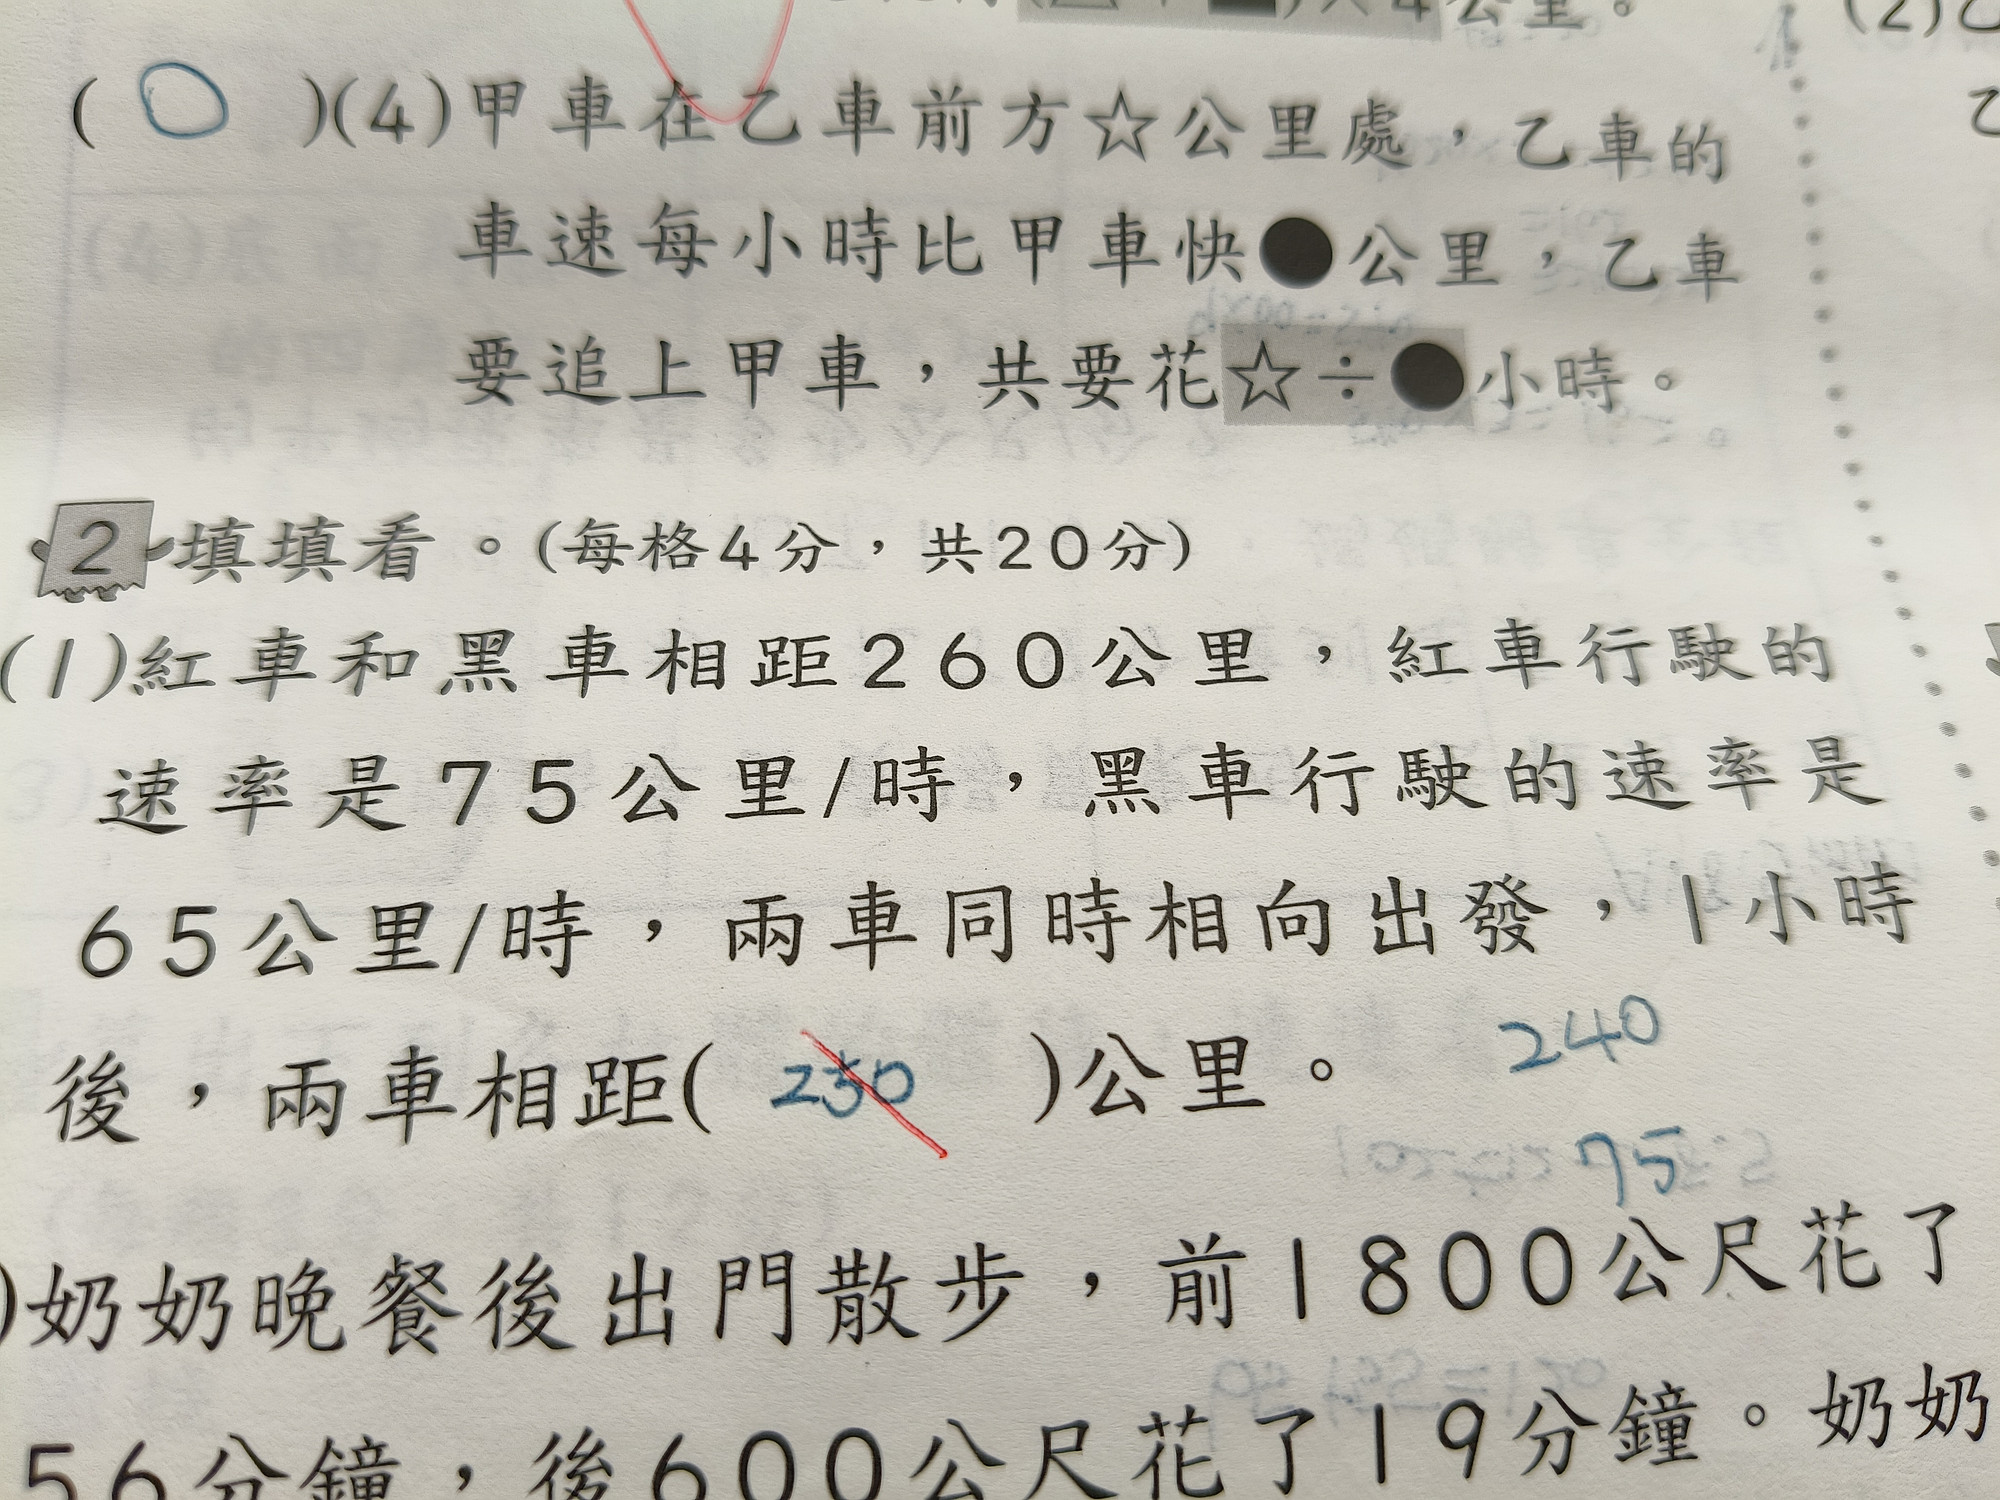 公里。
(2)乙
( ○ )(4)甲車在乙車前方☆公里處，乙車的
乙
車速每小時比甲車快●公里，乙車
要追上甲車，共要花☆÷●小時。
2 填填看。(每格4分，共20分)
(1)紅車和黑車相距260公里，紅車行駛的
速率是75公里/時，黑車行駛的速率是
65公里/時，兩車同時相向出發，1小時
後，兩車相距( 250 )公里。
240
75
)奶奶晚餐後出門散步，前1800公尺花了
56分鐘，後600公尺花了19分鐘。奶奶